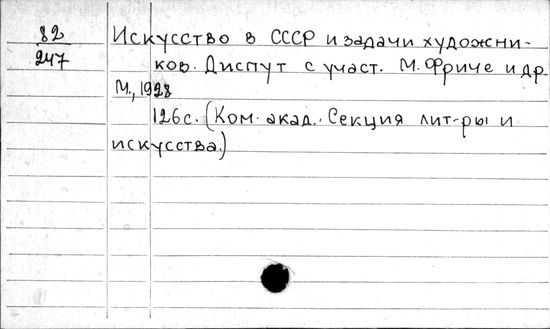 82
247
Искусство в СССР и задачи художни-
ков. Диспут с участ. М. Фриче и др.
М., 1928
126с. (Ком. акад. Секция лит-ры и
искусства.)